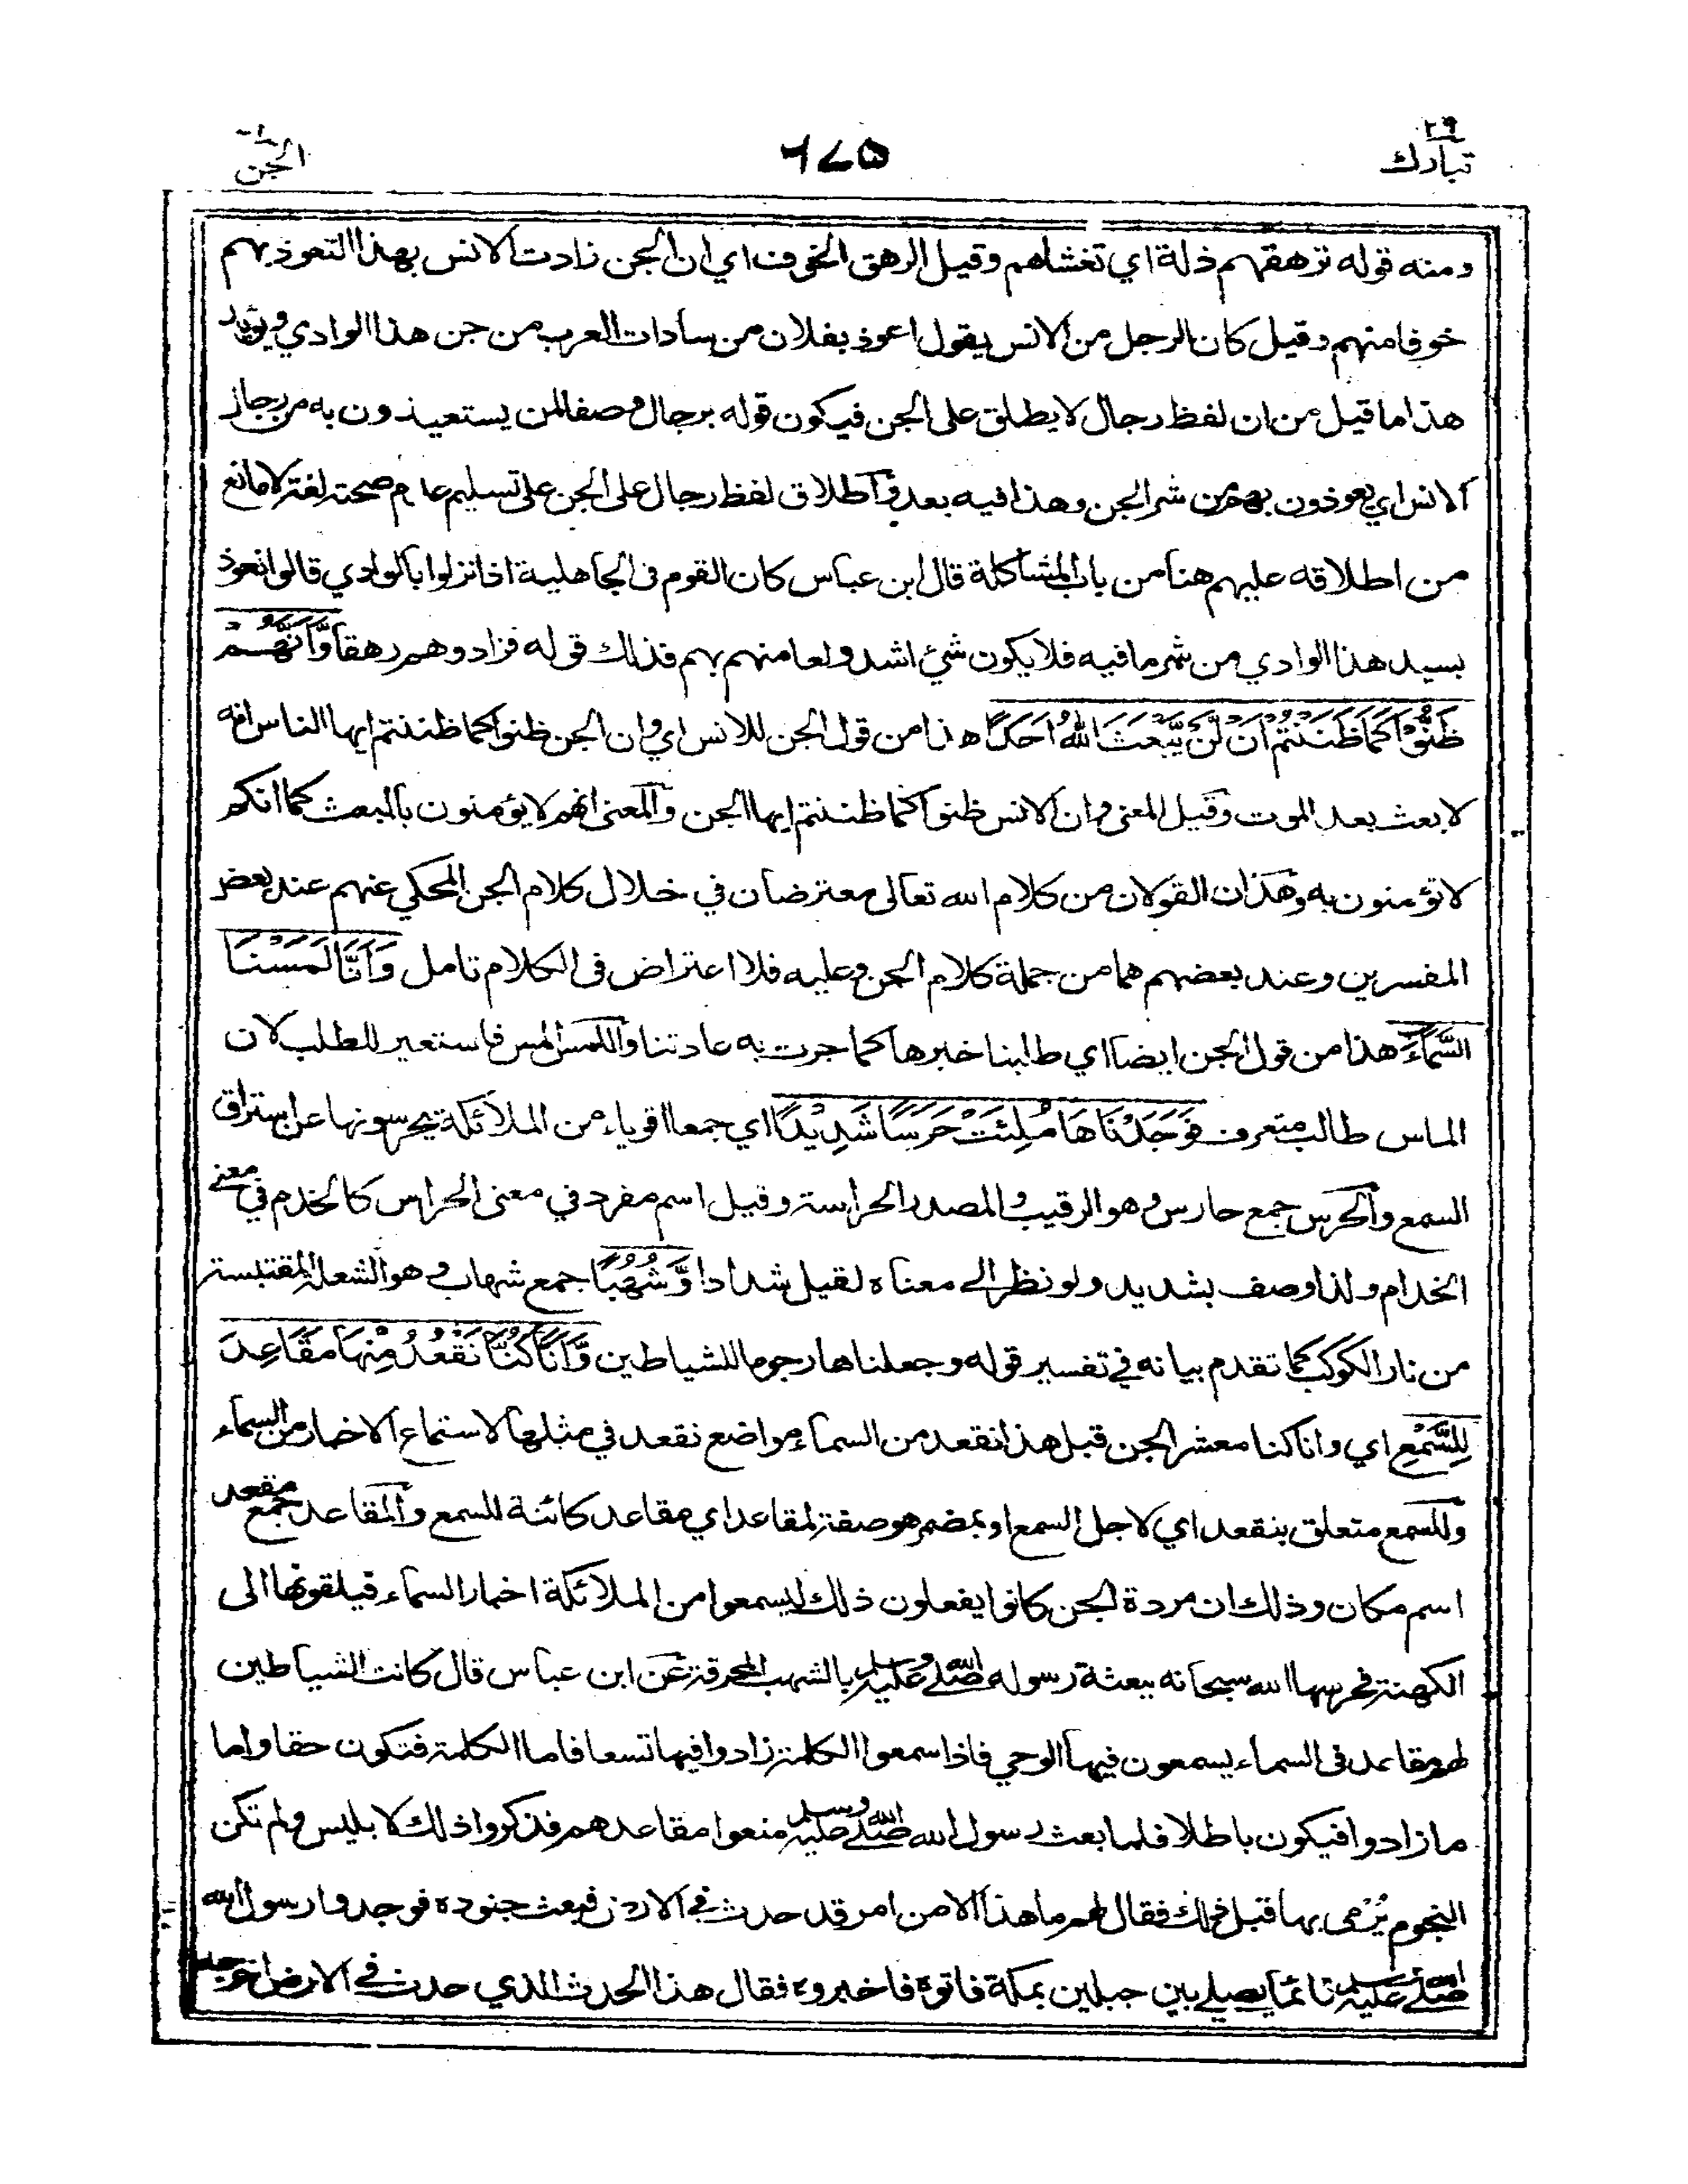 ٢٩
تبارك
٦٧٥
الجن
ومنه قوله ترهقهم ذلة اي تغشاهم وقيل الرهق الخوف اي ان الجن زادت الانس بهذا التعوذ بهم
خوفا منهم وقيل كان الرجل من الانس يقول اعوذ بفلان من سادات العرب من جن هذا الوادي ويؤيد
هذا ما قيل من ان لفظ رجال لا يطلق على الجن فيكون قوله برجال وصفا لمن يستعيذون به من رجال
الانس اي يعوذون بهم من شر الجن وهذا فيه بعد واطلاق لفظ رجال على الجن على تسليم عدم صحته لغة لا مانع
من اطلاقه عليهم هنا من باب المشاكلة قال ابن عباس كان القوم في الجاهلية اذا نزلوا بالوادي قالوا نعوذ
بسيد هذا الوادي من شر ما فيه فلا يكون شئ اشد ولعا منهم بهم فذلك قوله فزادوهم رهقا وَّاَنَّهُمْ
ظَنُّوْا كَمَا ظَنَنْتُمْ اَنْ لَّنْ يَّبْعَثَ اللّٰهُ اَحَدًا هذا من قول الجن للانس اي وان الجن ظنوا كما ظننتم ايها الناس انه
لا بعث بعد الموت وقيل المعنى وان الانس ظنوا كما ظننتم ايها الجن والمعنى انهم لا يؤمنون بالبعث كما انكم
لا تؤمنون به وهذان القولان من كلام الله تعالى معترضان في خلال كلام الجن المحكي عنهم عند بعض
المفسرين وعند بعضهم هما من جملة كلام الجن وعليه فلا اعتراض في الكلام تامل وَاَنَّا لَمَسْنَا
السَّمَآءَ هذا من قول الجن ايضا اي طلبنا خبرها كما جرت به عادتنا واللمس المس فاستعير للطلب لان
الماس طالب متعرف فَوَجَدْنَاهَا مُلِئَتْ حَرَسًا شَدِيْدًا اي جمعا اقوياء من الملائكة يحرسونها عن استراق
السمع والحرس جمع حارس وهو الرقيب والمصدر الحراسة وقيل اسم مفرد في معنى الحراس كالخدم في معنى
الخدام ولذا وصف بشديد ولو نظر الى معناه لقيل شدادا وَّشُهُبًا جمع شهاب وهو الشعلة المقتبسة
من نار الكوكب كما تقدم بيانه في تفسير قوله وجعلناها رجوما للشياطين وَّاَنَّا كُنَّا نَقْعُدُ مِنْهَا مَقَاعِدَ
لِلسَّمْعِ اي وانا كنا معشر الجن قبل هذا نقعد من السماء مواضع نقعد في مثلها لاستماع الاخبار من السماء
وللسمع متعلق بنقعد اي لاجل السمع او بمضمر هو صفة لمقاعد اي مقاعد كائنة للسمع والمقاعد جمع مقعد
اسم مكان وذلك ان مردة الجن كانوا يفعلون ذلك ليسمعوا من الملائكة اخبار السماء فيلقونها الى
الكهنة فحرسها الله سبحانه ببعثة رسوله صلى الله عليه وسلم بالشهب المحرقة عن ابن عباس قال كانت الشياطين
لهم مقاعد في السماء يسمعون فيها الوحي فاذا سمعوا الكلمة زادوا فيها تسعا فاما الكلمة فتكون حقا واما
ما زادوا فيكون باطلا فلما بعث رسول الله صلى الله عليه وسلم منعوا مقاعدهم فذكروا ذلك لابليس ولم تكن
النجوم يُرْمى بها قبل ذلك فقال لهم ما هذا الا من امر قد حدث في الارض فبعث جنوده فوجدوا رسول الله
صلى الله عليه وسلم قائما يصلي بين جبلين بمكة فاتوه فاخبروه فقال هذا الحدث الذي حدث في الارض اخرجه